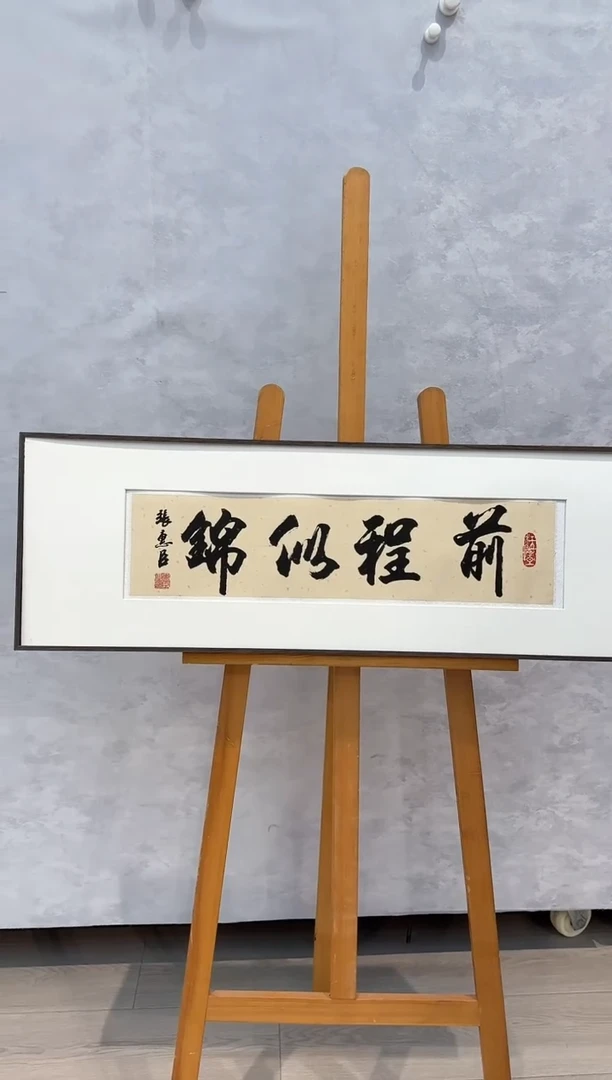 前程似錦
張惠臣